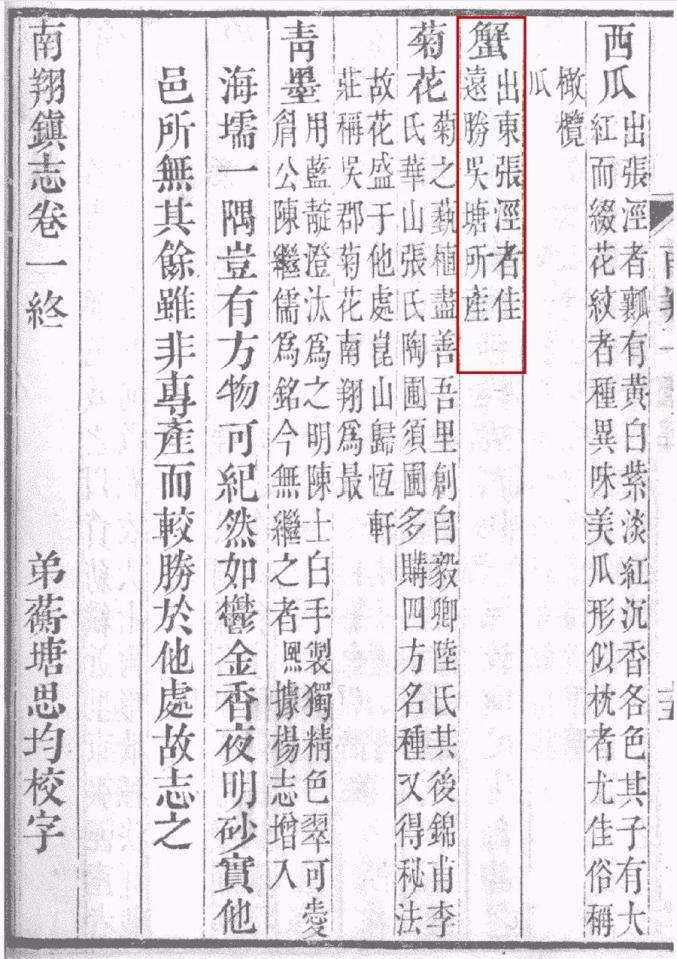 西瓜 出張涇者瓤有黃白紫淡紅沉香各色其子有大
紅而綴花紋者種異味美瓜形似枕者尤佳俗稱
橄欖
瓜
蟹 出東張涇者佳
遠勝吳塘所產
菊花 菊之藝植盡善吾里創自毅卿陸氏其後錦甫李
氏華山張氏陶圃須圃多購四方名種又得秘法
故花盛于他處崑山歸恆軒
莊稱吳郡菊花南翔爲最
青墨 用藍靛澄汰爲之明陳士白手製獨精色翠可愛
眉公陳繼儒爲銘今無繼之者 據楊志增入
海壖一隅豈有方物可紀然如鬱金香夜明砂實他
邑所無其餘雖非專產而較勝於他處故志之
南翔鎮志卷一終 弟蘅塘思均校字